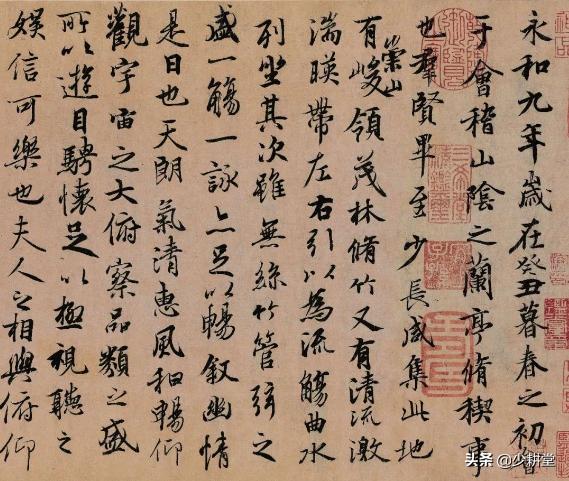 永和九年歲在癸丑暮春之初會
于會稽山陰之蘭亭脩稧事
也羣賢畢至少長咸集此地
有崇山峻領茂林脩竹又有清流激
湍暎帶左右引以為流觴曲水
列坐其次雖無絲竹管弦之
盛一觴一詠亦足以暢叙幽情
是日也天朗氣清惠風和暢仰
觀宇宙之大俯察品類之盛
所以遊目騁懷足以極視聽之
娛信可樂也夫人之相與俯仰
头条 @少耕堂